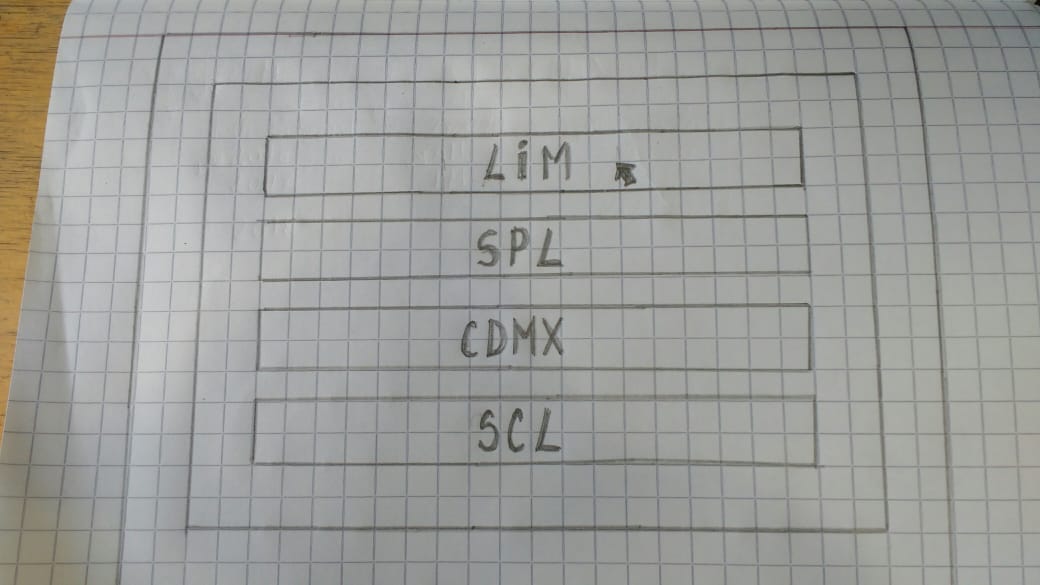 LiM
SPL
CDMX
SCL